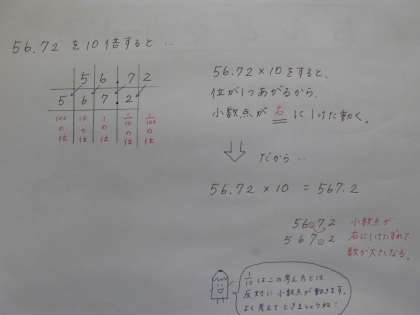 56.72 を10倍すると…
5 6 . 7 2
5 6 7 . 2
100の位 10の位 1の位 1/10の位 1/100の位
56.72×10をすると、
位が1つあがるから、
小数点が 右 に1けた動く。
だから…
56.72×10 = 567.2
56.7.2 小数点が
567.2 右に1けたずれて
数が大きくなる。
1/10はこの考え方とは
反対に小数点が動きます。
よく考えてときましょうね!